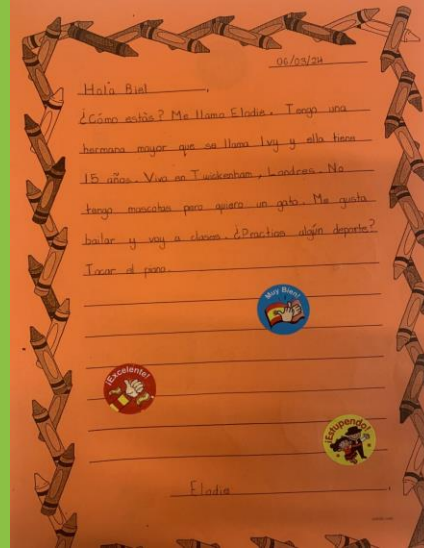 06/03/24
Hola Biel,
¿Cómo estás? Me llamo Elodie. Tengo una
hermana mayor que se llama Ivy y ella tiene
15 años. Vivo en Twickenham, Londres. No
tengo mascotas pero quiero un gato. Me gusta
bailar y voy a clases. ¿Practicas algún deporte?
Tocar el piano.
¡Muy Bien!
¡Excelente!
¡Estupendo!
Elodie.